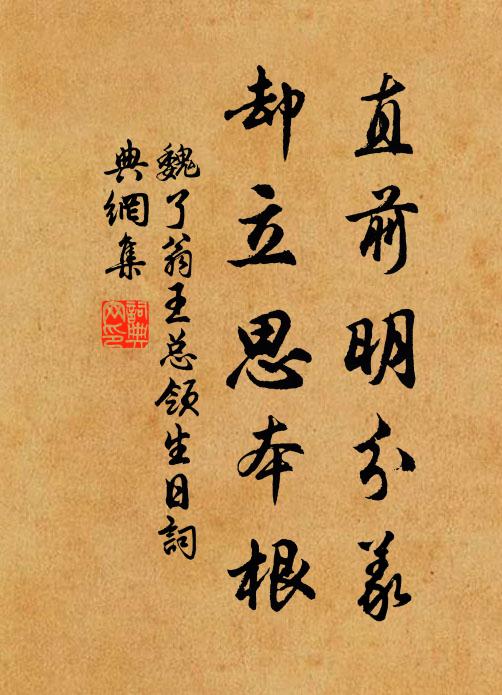 直前明分義
却立思本根
魏了翁王总领生日詞
典網集
詞典网印